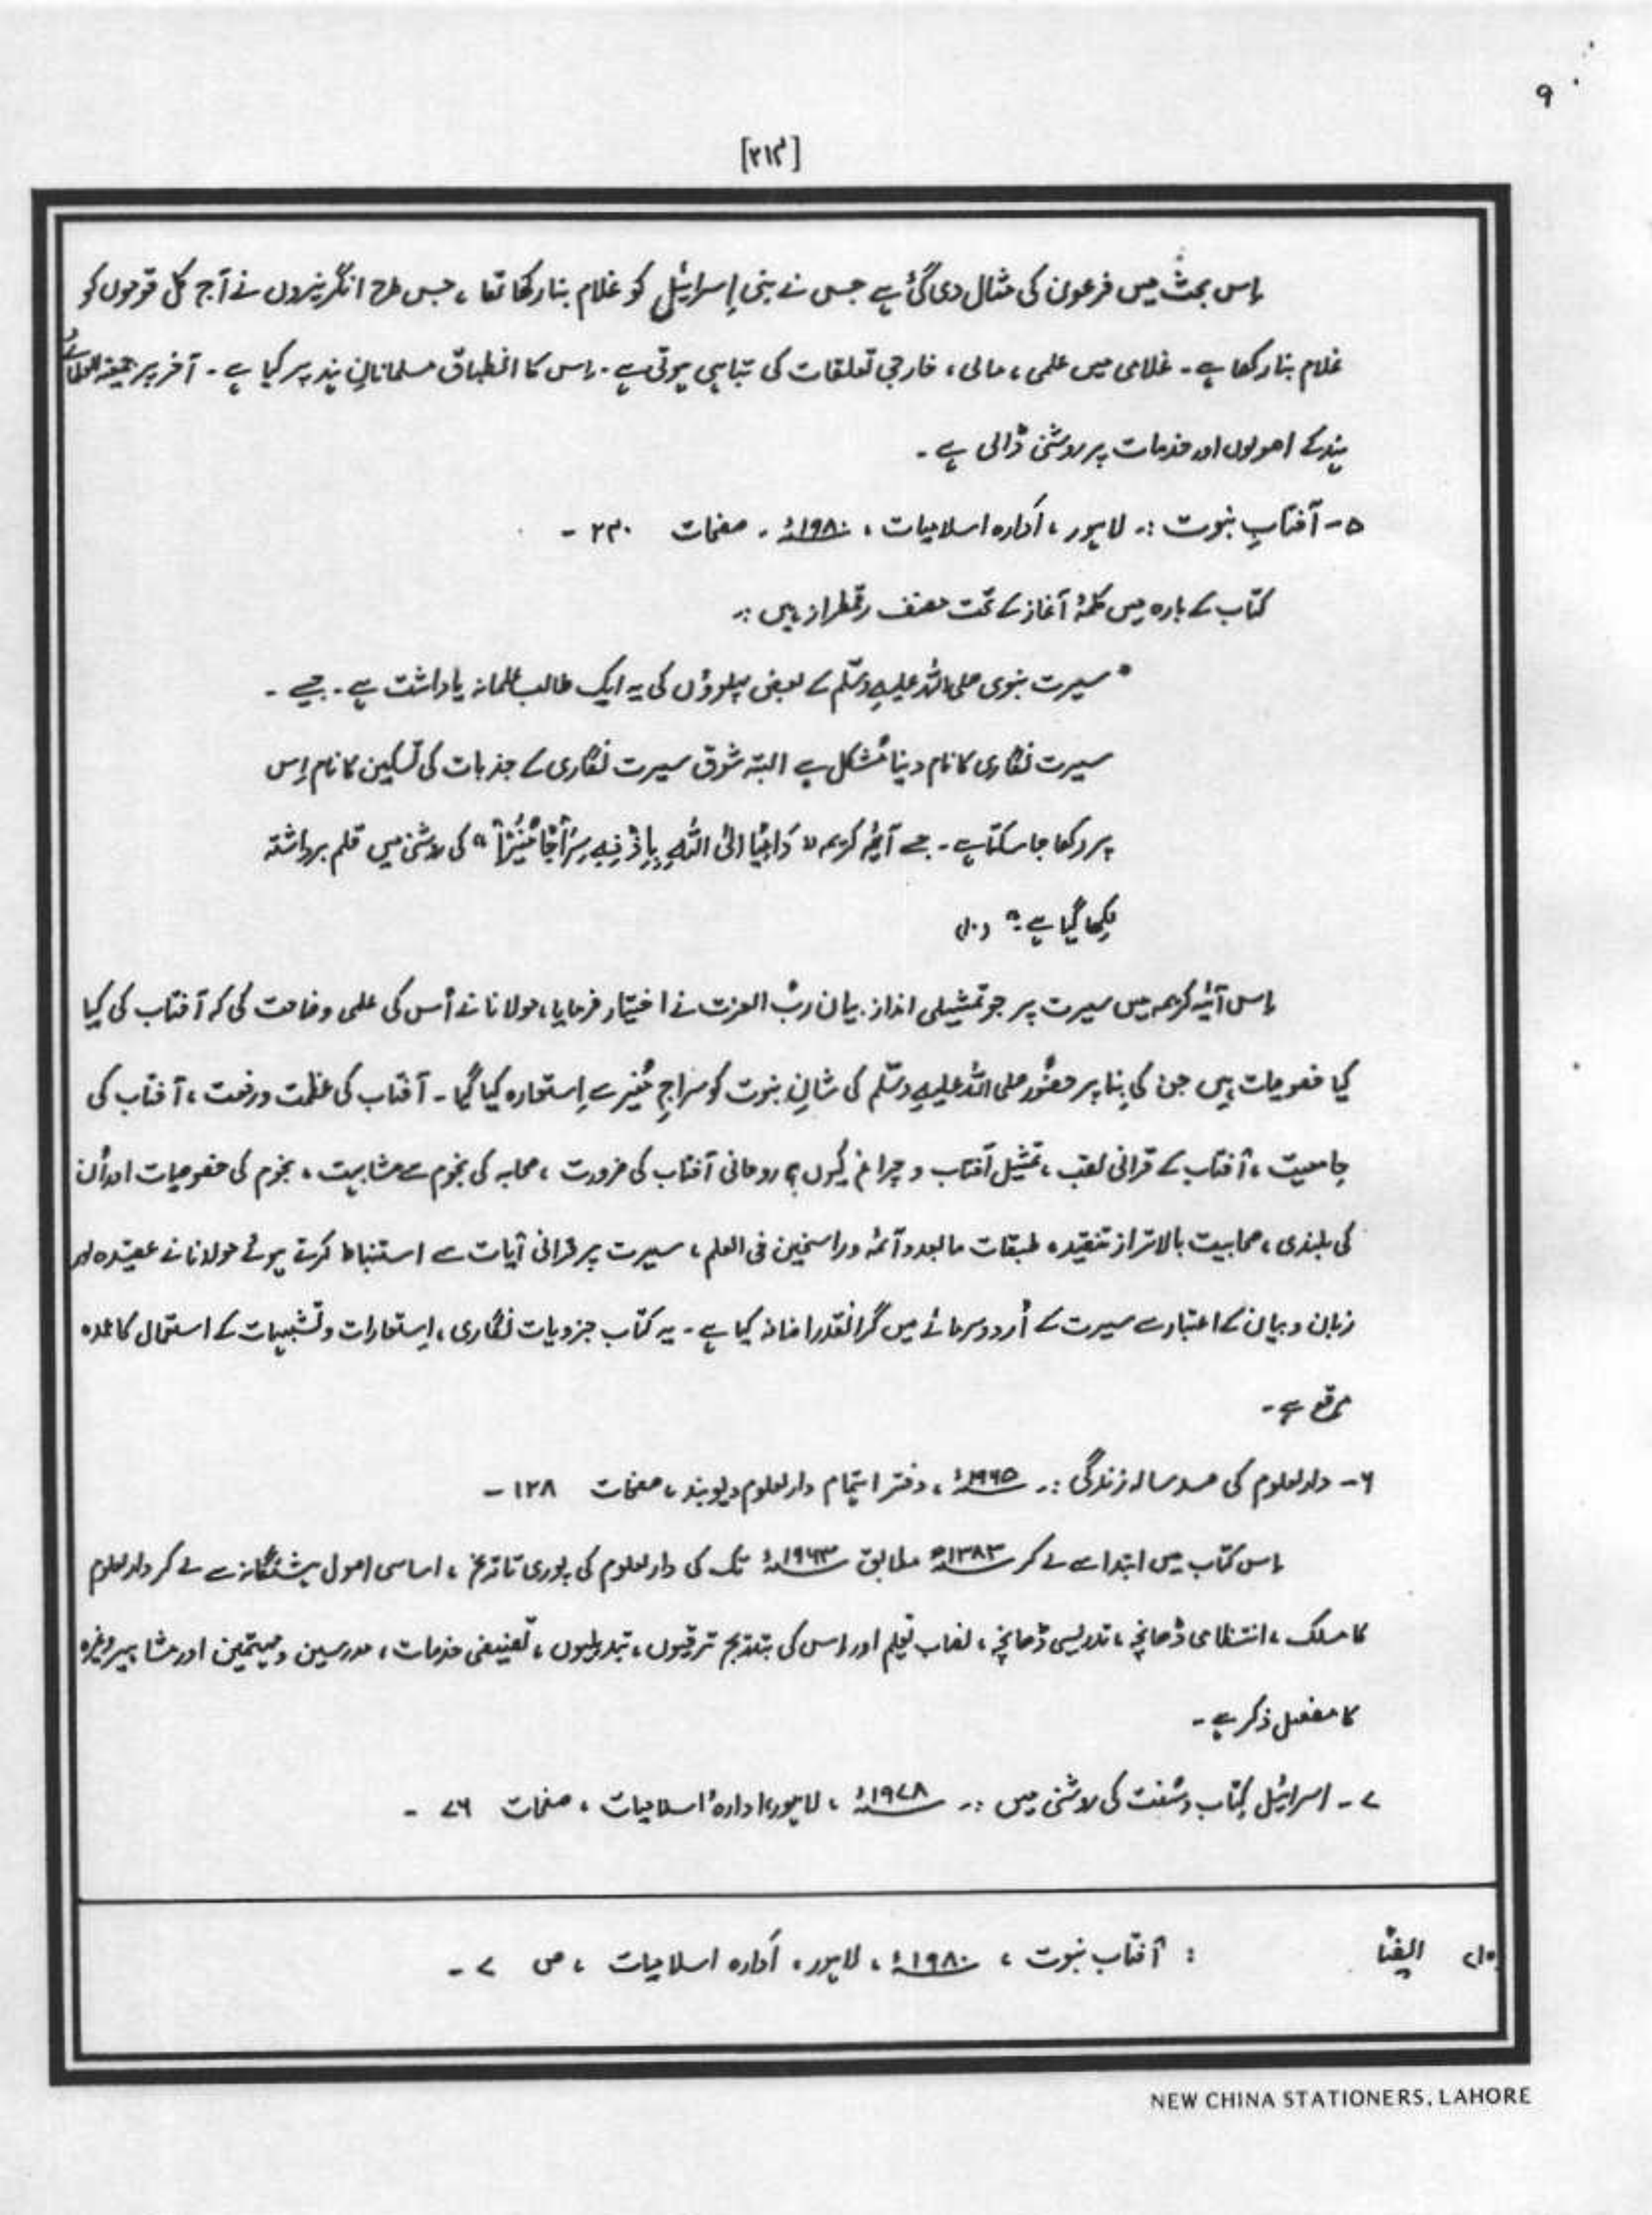 ۹
[۳۱۴]
اِس بحث میں فرعون کی مثال دی گئی ہے جس نے بنی اِسرائیل کو غلام بنا رکھا تھا ، جس طرح انگریزوں نے آج کل قوموں کو
غلام بنا رکھا ہے ۔ غلامی میں علمی ، مالی ، خارجی تعلقات کی تباہی ہوتی ہے ۔ اِس کا انطباق مسلمانانِ ہند پر کیا ہے ۔ آخر پر جمیعتہ العلمائے
ہند کے اصولوں اور خدمات پر روشنی ڈالی ہے ۔
۵ ۔ آفتابِ نبوت :۔ لاہور ، اَدارہ اسلامیات ، ۱۹۸۰ء ۔ صفحات ۲۳۰ ۔
کتاب کے بارہ میں کلمۂ آغاز کے تحت مصنف رقمطراز ہیں :۔
" سیرت نبوی صلی اللہ علیہِ وسّلم کے بعض پہلوؤں کی یہ ایک طالب علمانہ یاداشت ہے ۔ جسے ۔
سیرت نگاری کا نام دینا مُشکل ہے البتہ شوق سیرت نگاری کے جذبات کی تسکین کا نام اِس
پر رکھا جا سکتا ہے ۔ جسے آیٔہ کریمہ " دَاعِیًا اِلیَ اللّٰہِ بِاِذْنِہٖ سِرَاجًا مُّنِیْرًا " کی روشنی میں قلم برداشتہ
لِکھا گیا ہے :" (۱۰)
اِس آیٔہ کریمہ میں سیرت پر جو تمثیلی انداز بیان ربُّ العزت نے اختیار فرمایا ، مولانا نے اُس کی علمی وضاحت کی کہ آفتاب کی کیا
کیا خصوصیات ہیں جن کی بِنا پر حضُور صلی اللہ علیہِ وسّلم کی شانِ نبوت کو سراجِ مُنیر سے اِستعارہ کیا گیا ۔ آفتاب کی عظمت و رفعت ، آفتاب کی
جامعیت ، آفتاب کے قرآنی لقب ، تمثیل آفتاب و چراغ کیوں ؟ روحانی آفتاب کی ضرورت ، صحابہ کی نجوم سے مشابہت ، نجوم کی خصوصیات اور اُن
کی بلندی ، صحابیت بالاتر از تنقید ، طبقات مابعد و آئمہ و راسخین فی العلم ، سیرت پر قرآنی آیات سے استنباط کرتے ہوئے مولانا نے عقیدہ اور
زبان و بیان کے اعتبار سے سیرت کے اُردو سرمائے میں گرانقدر اضافہ کیا ہے ۔ یہ کتاب جزویات نگاری ، اِستعارات و تشبیہات کے استعمال کا عمدہ
مرقع ہے ۔
۶ ۔ دارلعلوم کی صد سالہ زندگی :۔ ۱۹۶۵ء ، دفتر اہتمام دارلعلوم دیوبند ، صفحات ۱۲۸ ۔
اِس کتاب میں ابتدا سے لے کر ۱۳۸۳ھ مطابق ۱۹۶۳ء تک کی دارلعلوم کی پوری تاتریخ ، اساسی اصول ہشتگانہ سے لے کر دارلعلوم
کا مسلک ، انتظامی ڈھانچہ ، تدریسی ڈھانچہ ، نصاب تعلیم اور اِس کی بتدریج ترقیوں ، تبدیلیوں ، تصنیفی خدمات ، مدرسین و مہتممین اور مشاہیر وغیرہ
کا مفصل ذکر ہے ۔
۷ ۔ اسرائیل کِتاب و سُنت کی روشنی میں :۔ ۱۹۷۸ء ، لاہور ، ادارۂ اسلامیات ، صفحات ۷۶ ۔
(۱۰) ایضًا : آفتاب نبوت ، ۱۹۸۰ء ، لاہور ، اَدارہ اسلامیات ، ص ۷ ۔
NEW CHINA STATIONERS, LAHORE